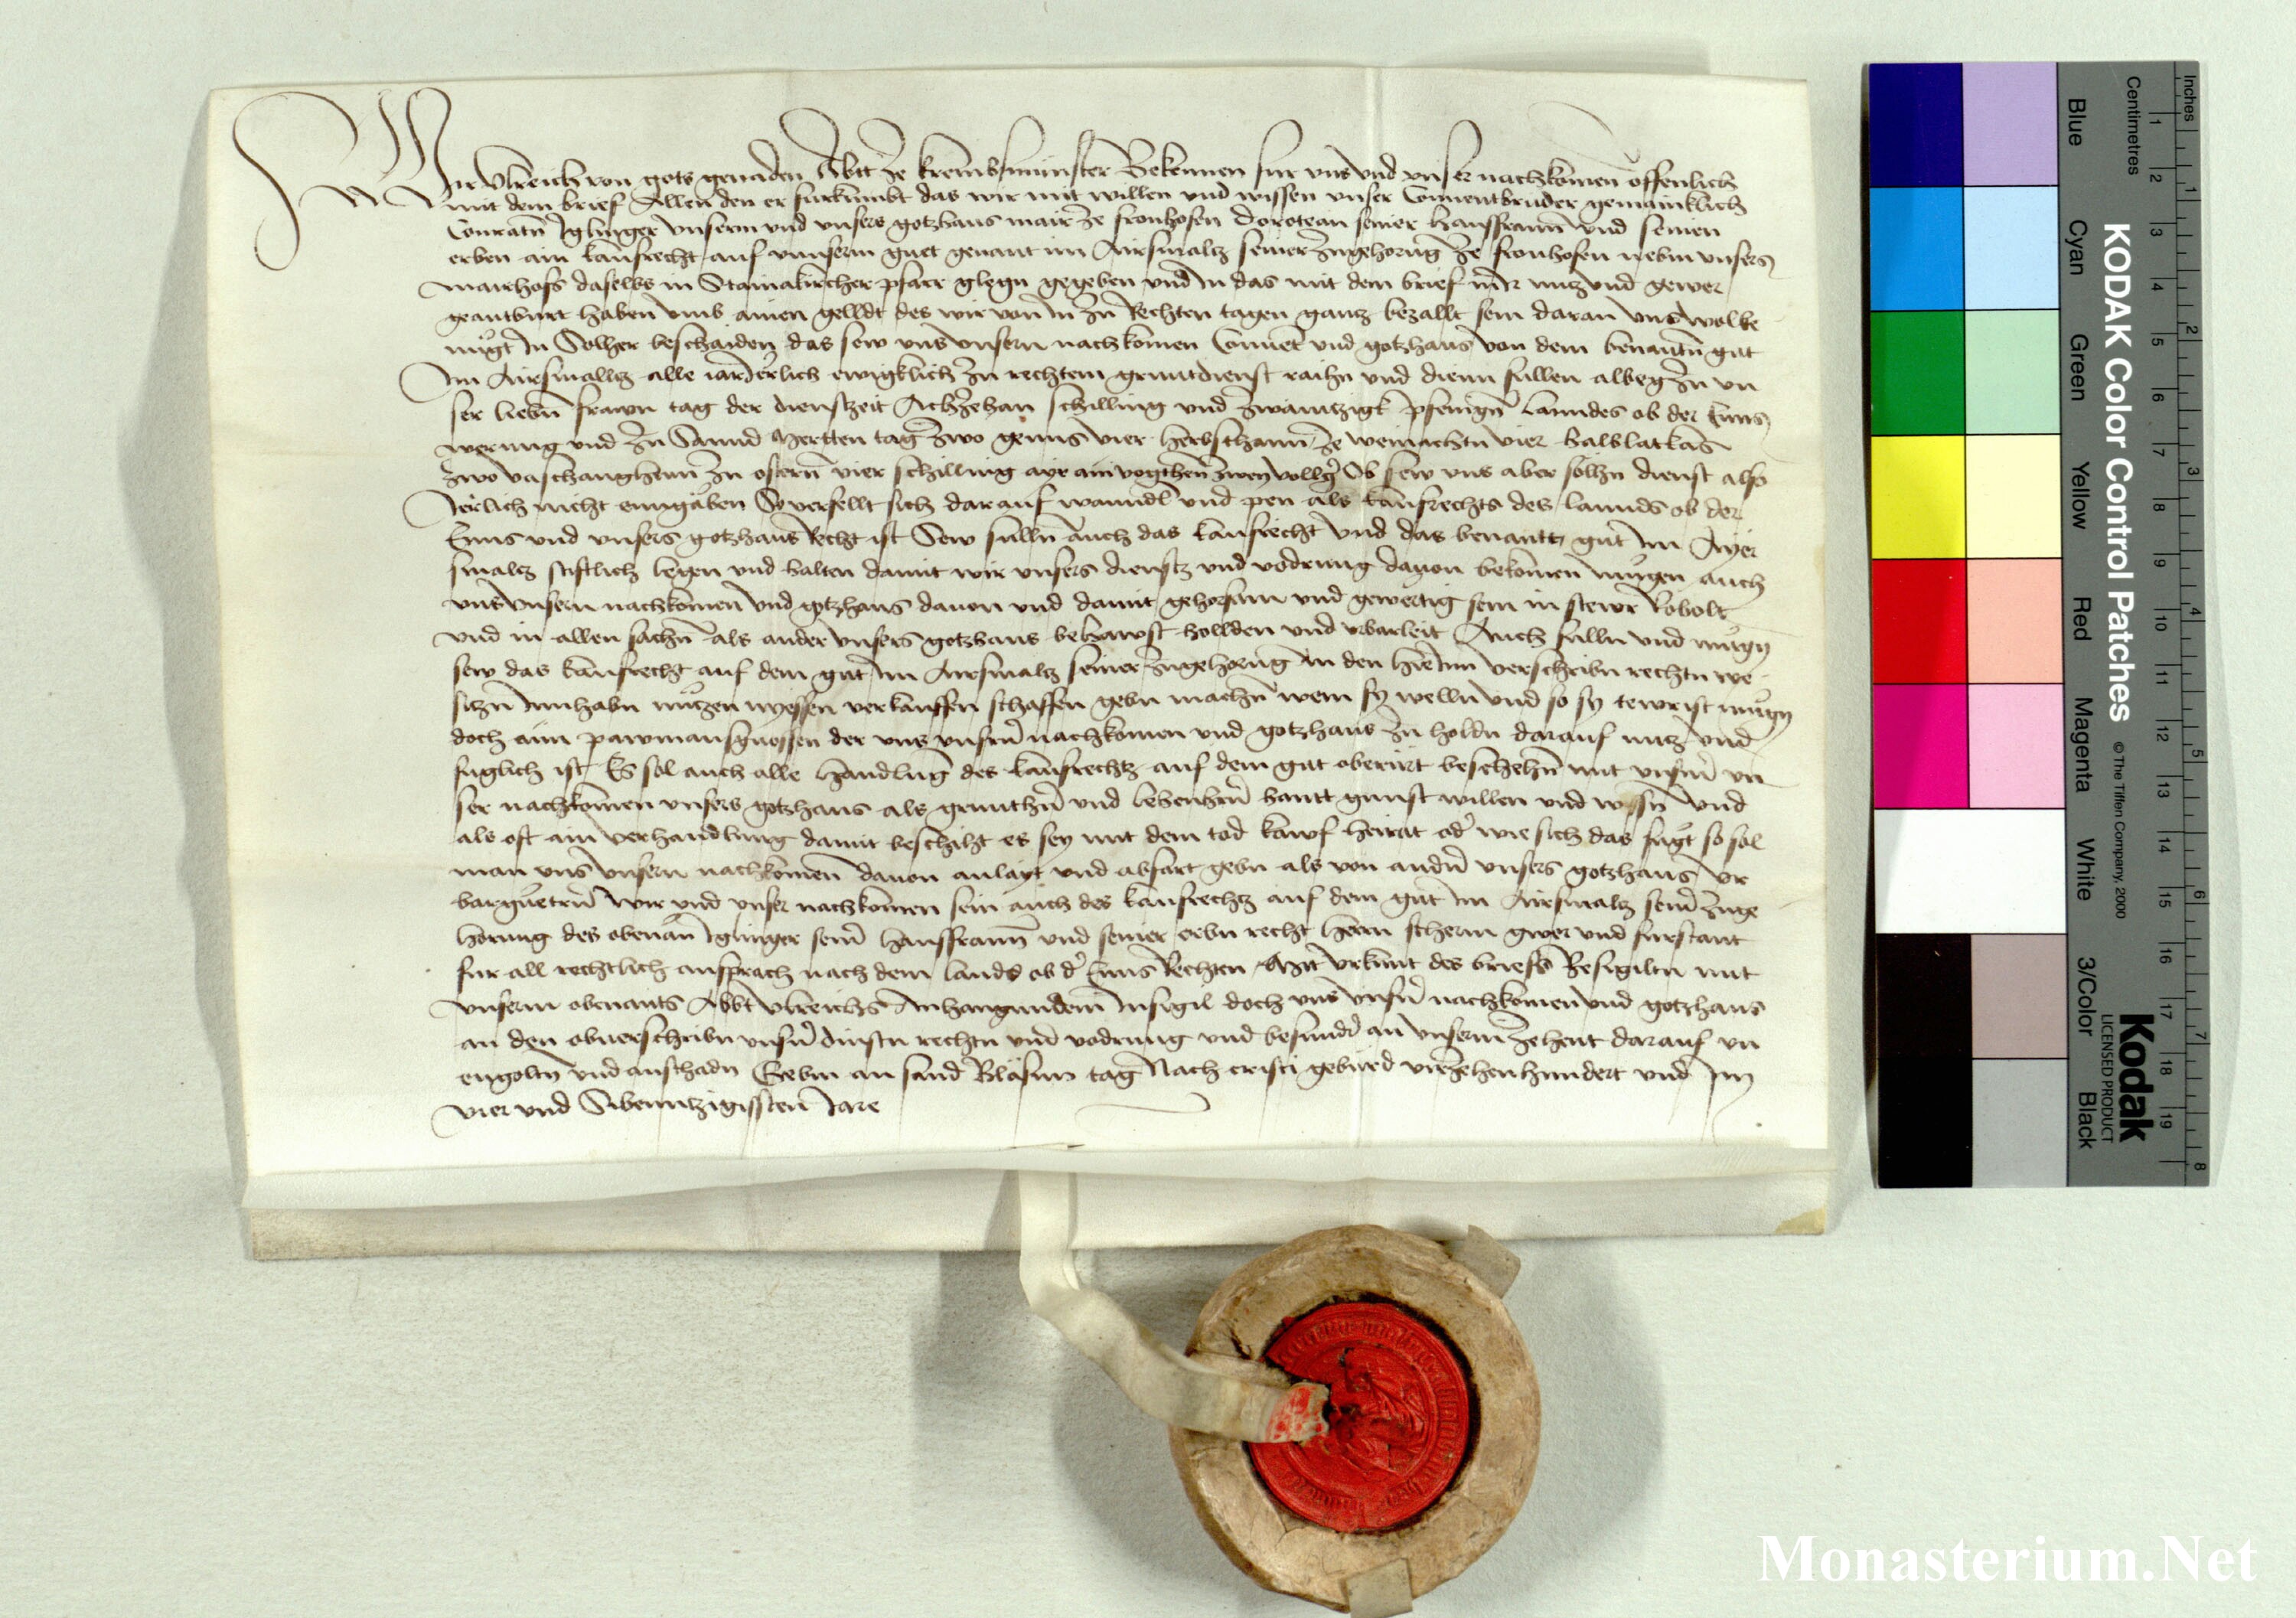 Wir Ulreich von gots genaden Abtt ze krembsmünster Bekennen fur uns und unser nachkomen offenlich
mit dem brief Allen den er furkumbt das wir mit willen und wissen unser Conventbruder gemainklich
Conratn Iglinger unserm und unsers gotzhaus mair ze fronhofen Dorotean seiner hausfraun und seinen
erben ain kaufrecht auf unnserm guet genant im Airsmaltz seiner zugehorug ze fronhofen nebm unsers
mairhofs daselbs in Stainakircher pfarr glegn gegeben und In das mit dem brief In Ir nutz und gewer
geantburt haben umb ainen gelldt des wir von In zu Rechten tagen gantz bezallt sein daran uns wolbe
nugt In Solher beschaiden das sew uns unsern nachkomen Convent und gotzhaus von dem benantn gut
Im Airsmalltz alle iar Jerlich ewigklich zu rechtem gruntdienst raihn und dienn sullen albeg zu un
ser liebn frawn tag der dienstzeit Achzehan schilling und zwaintzigk pfenign lanndes ob der Enns
werung und zu Sannd Mertten tag zwo genns vier herbsthann ze weinachtn vier halblatkas
zwo vaschanghenn zu ostern vier schilling ayr ain vogthen zwen vollg Ob sew uns aber solhn dienst also
Jerlich nicht enngaben So verfellt sich darauf wanndl und pen als kaufrechts des lannds ob der
Enns und unsers gotzhaus Recht ist Sew sulln auch das kaufrecht und das benantt gut im Ayer
smaltz stiftlich legen und halten damit wir unsers diensts und vodrung davon bekomen mugen auch
uns unsern nachkomen und gotzhaus davon und damit gehorsam und gewertig sein in stewr Robolt
und in allen sachn als ander unsers gotzhaus behawst hollden und urbarleit Auch sulln und mugn
sew das kaufrecht auf dem gut im Airsmaltz seiner zugehorug In den hieInn verschribn rechtn we
sitzn Innhabn nutzen nyessen verkauffen schaffen gebn machn wem sy welln und so sy tewrist mugn
doch aim pawmansgnossen der uns unsern nachkomen und gotzhaus zu holdn darauf nutz und
fuglich ist Es sol auch alle handlug des kaufrechtz auf dem gut oberurt beschehn mit unser un
ser nachkomen unsers gotzhaus als grunthrn und lehenhrn hantt gunst willen und wissn und
als oft ain verhandlung damit beschiht es sey mit dem tod kauf heirat od wie sich das fugt so sol
man uns unsern nachkomen davon anlayt und abfart gebn als von andern unsers gotzhaus ur
barguetern Wir und unser nachkomen sein auch des kaufrechtz auf dem gut im Airsmaltz seiner zuge
horung des obenan Iglinger seiner hausfraun und seiner erbn recht herrn scherm gwer und furstant
fur all rechtlich ansprach nach dem lands ob der Enns Rechten Mit urkunt des briefs Besigiltn mit
unserm obenants Abbt Ulreichs Anhangundem Insigil doch uns unsern nachkomen und gotzhaus
an den obverschribn unsern dinstn rechtn und vodrung und besunder an unserm zehent darauf un
engoltn und anschadn Gebm an sand Blasun tag Nach cristi gebürd vierzehenhundert und Im
vier und Sibenntzigissten Jare
KODAK Color Control Patches
© The Tiffen Company, 2000
Kodak
LICENSED PRODUCT
Inches
Centimetres
1 2 3 4 5 6 7 8
1 2 3 4 5 6 7 8 9 10 11 12 13 14 15 16 17 18 19
Blue
Cyan
Green
Yellow
Red
Magenta
White
3/Color
Black
Monasterium.Net